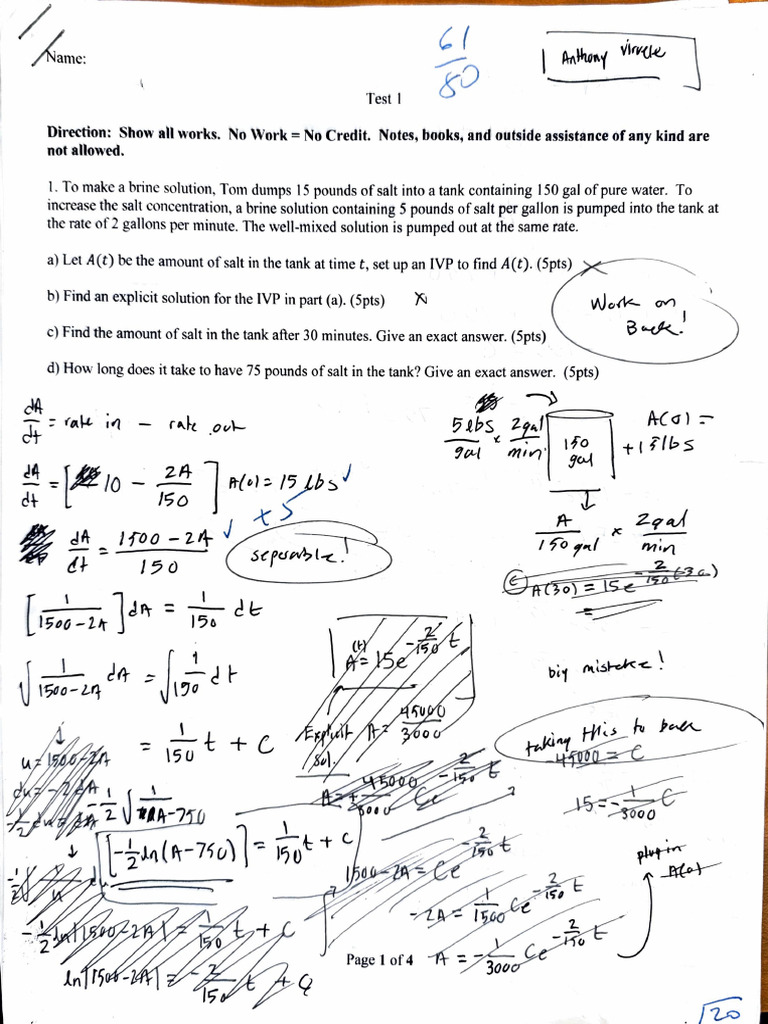 Name:
61
80
Anthony
Test 1
Direction: Show all works. No Work = No Credit. Notes, books, and outside assistance of any kind are
not allowed.
1. To make a brine solution, Tom dumps 15 pounds of salt into a tank containing 150 gal of pure water. To
increase the salt concentration, a brine solution containing 5 pounds of salt per gallon is pumped into the tank at
the rate of 2 gallons per minute. The well-mixed solution is pumped out at the same rate.
a) Let A(t) be the amount of salt in the tank at time t, set up an IVP to find A(t). (5pts)
b) Find an explicit solution for the IVP in part (a). (5pts)
Work on
Back!
c) Find the amount of salt in the tank after 30 minutes. Give an exact answer. (5pts)
d) How long does it take to have 75 pounds of salt in the tank? Give an exact answer. (5pts)
dA/dt = rate in - rate out
5 lbs/gal × 2gal/min
150
gal
A(0) =
+15 lbs
dA/dt = [10 - 2A/150] A(0) = 15 lbs
+5
A/150 gal × 2gal/min
dA/dt = (1500 - 2A)/150
seperable!
C A(30) = 15e^(-2/150 (30))
[1/(1500-2A)] dA = 1/150 dt
∫ 1/(1500-2A) dA = ∫ 1/150 dt
A(t) = 15e^(-2/150 t)
big mistake!
Explicit
Sol.
A = 45000/3000
taking this to back
-45000 = C
u = 1500-2A
= 1/150 t + C
du = -2 dA
-1/2 du = dA
-1/2 ∫ 1/(A-750)
15 = -1/3000 C
[-1/2 ln(A-750)] = 1/150 t + C
1500-2A = Ce^(-2/150 t)
plug in
A(0)
-2A = 1/1500 Ce^(-2/150 t)
-1/2 ln|1500-2A| = 1/150 t + C
A = -1/3000 Ce^(-2/150 t)
ln|1500-2A| = -2/150 t + C
Page 1 of 4
20